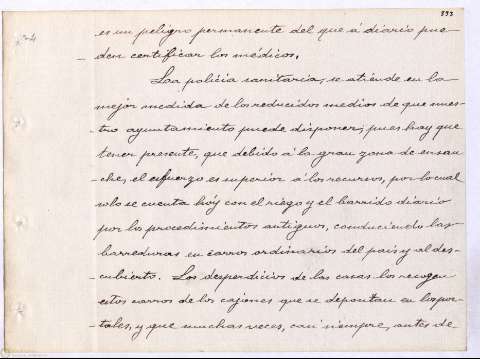 393
es un peligro permanente del que á diario pue-
den certificar los médicos.
Laa policia sanitaria, se atiende en la
mejor medida de los reducidos medios de que nues-
tro ayuntamiento puede disponer; pues hay que
tener presente, que debido á la gran zona de ensan-
che, el esfuerzo es superior á los recursos, por lo cual
solo se cuenta hoy con el riego y el barrido diario
por los procedimientos antiguos, conduciendo las
barreduras en carros ordinarios del pais y al des-
cubierto. Los desperdicios de las casas los recogen
estos carros de los cajones que se depositan en los por-
tales, y que muchas veces, casi siempre, antes de